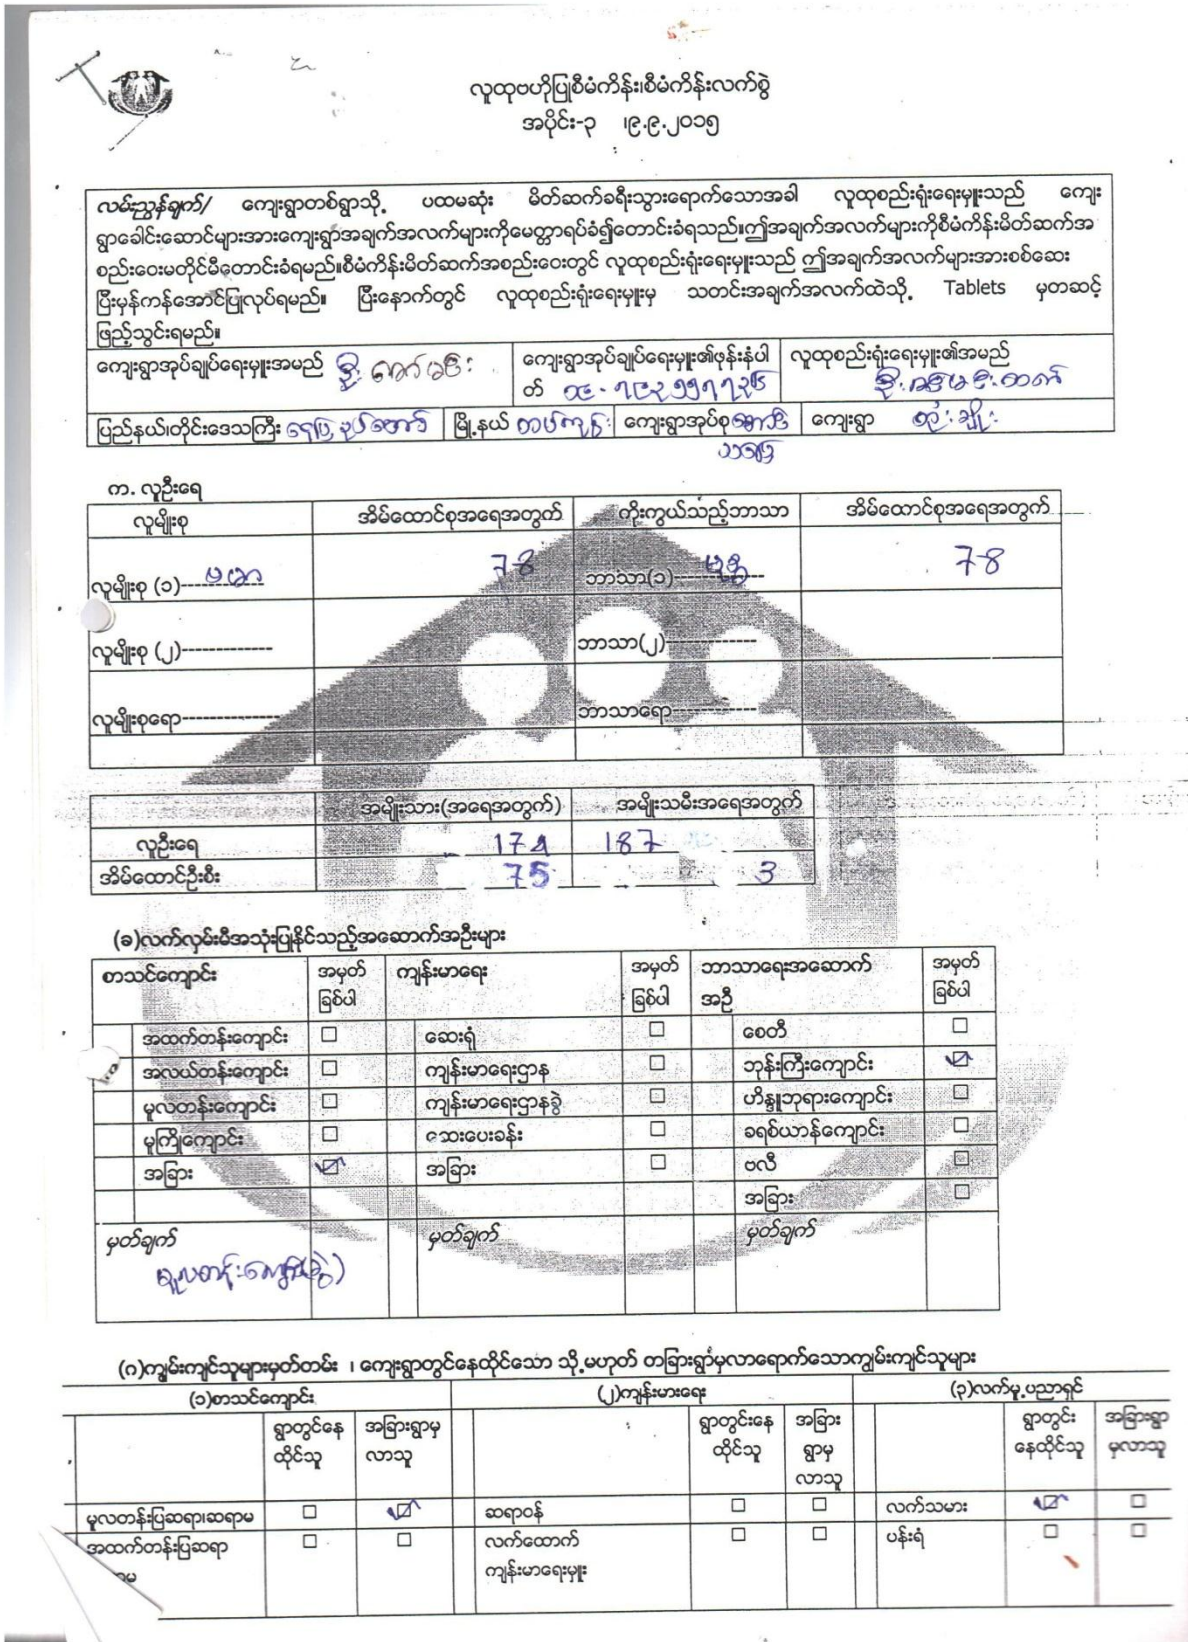 လူထုဗဟိုပြုစီမံကိန်း၊စီမံကိန်းလက်စွဲ
အပိုင်း-၃ ၊၉.၉.၂၀၁၅
လမ်းညွှန်ချက်/ ကျေးရွာတစ်ရွာသို့ ပထမဆုံး မိတ်ဆက်ခရီးသွားရောက်သောအခါ လူထုစည်းရုံးရေးမှူးသည် ကျေး
ရွာခေါင်းဆောင်များအားကျေးရွာအချက်အလက်များကိုမေတ္တာရပ်ခံ၍တောင်းခံရသည်။ဤအချက်အလက်များကိုစီမံကိန်းမိတ်ဆက်အ
စည်းဝေးမတိုင်မီတောင်းခံရမည်။စီမံကိန်းမိတ်ဆက်အစည်းဝေးတွင် လူထုစည်းရုံးရေးမှူးသည် ဤအချက်အလက်များအားစစ်ဆေး
ပြီးမှန်ကန်အောင်ပြုလုပ်ရမည်။ ပြီးနောက်တွင် လူထုစည်းရုံးရေးမှူးမှ သတင်းအချက်အလက်ထဲသို့ Tablets မှတဆင့်
ဖြည့်သွင်းရမည်။
ကျေးရွာအုပ်ချုပ်ရေးမှူးအမည် ကျေးရွာအုပ်ချုပ်ရေးမှူး၏ဖုန်းနံပါ လူထုစည်းရုံးရေးမှူး၏အမည်
တ်
ပြည်နယ်၊တိုင်းဒေသကြီး နေပြည်တော် မြို့နယ် တပ်ကုန်း ကျေးရွာအုပ်စု ကျေးရွာ
က. လူဦးရေ
လူမျိုးစု အိမ်ထောင်စုအရေအတွက် ကိုးကွယ်သည့်ဘာသာ အိမ်ထောင်စုအရေအတွက်
လူမျိုးစု (၁)------------ ဗမာ 78 ဘာသာ(၁)------------- ဗုဒ္ဓ 78
လူမျိုးစု (၂)------------- ဘာသာ(၂)-------------
လူမျိုးစုရော------------- ဘာသာရော-------------
အမျိုးသား(အရေအတွက်) အမျိုးသမီးအရေအတွက်
လူဦးရေ 174 187
အိမ်ထောင်ဦးစီး 75 3
(ခ)လက်လှမ်းမီအသုံးပြုနိုင်သည့်အဆောက်အဦးများ
စာသင်ကျောင်း အမှတ် ကျန်းမာရေး အမှတ် ဘာသာရေးအဆောက် အမှတ်
ခြစ်ပါ ခြစ်ပါ အဦ ခြစ်ပါ
အထက်တန်းကျောင်း ☐ ဆေးရုံ ☐ စေတီ ☐
အလယ်တန်းကျောင်း ☐ ကျန်းမာရေးဌာန ☐ ဘုန်းကြီးကျောင်း ☑
မူလတန်းကျောင်း ☐ ကျန်းမာရေးဌာနခွဲ ☐ ဟိန္ဒူဘုရားကျောင်း ☐
မူကြိုကျောင်း ☐ ဆေးပေးခန်း ☐ ခရစ်ယာန်ကျောင်း ☐
အခြား ☑ အခြား ☐ ဗလီ ☐
အခြား ☐
မှတ်ချက် မှတ်ချက် မှတ်ချက်
မူလတန်းကျောင်း(ခွဲ)
(ဂ)ကျွမ်းကျင်သူများမှတ်တမ်း ၊ ကျေးရွာတွင်နေထိုင်သော သို့မဟုတ် တခြားရွာမှလာရောက်သောကျွမ်းကျင်သူများ
(၁)စာသင်ကျောင်း (၂)ကျန်းမားရေး (၃)လက်မှု့ပညာရှင်
ရွာတွင်နေ အခြားရွာမှ ရွာတွင်းနေ အခြား ရွာတွင်း အခြားရွာ
ထိုင်သူ လာသူ ထိုင်သူ ရွာမှ နေထိုင်သူ မှလာသူ
လာသူ
မူလတန်းပြဆရာ၊ဆရာမ ☐ ☑ ဆရာဝန် ☐ ☐ လက်သမား ☑ ☐
အထက်တန်းပြဆရာ ☐ ☐ လက်ထောက် ☐ ☐ ပန်းရံ ☐ ☐
ကျန်းမာရေးမှူး